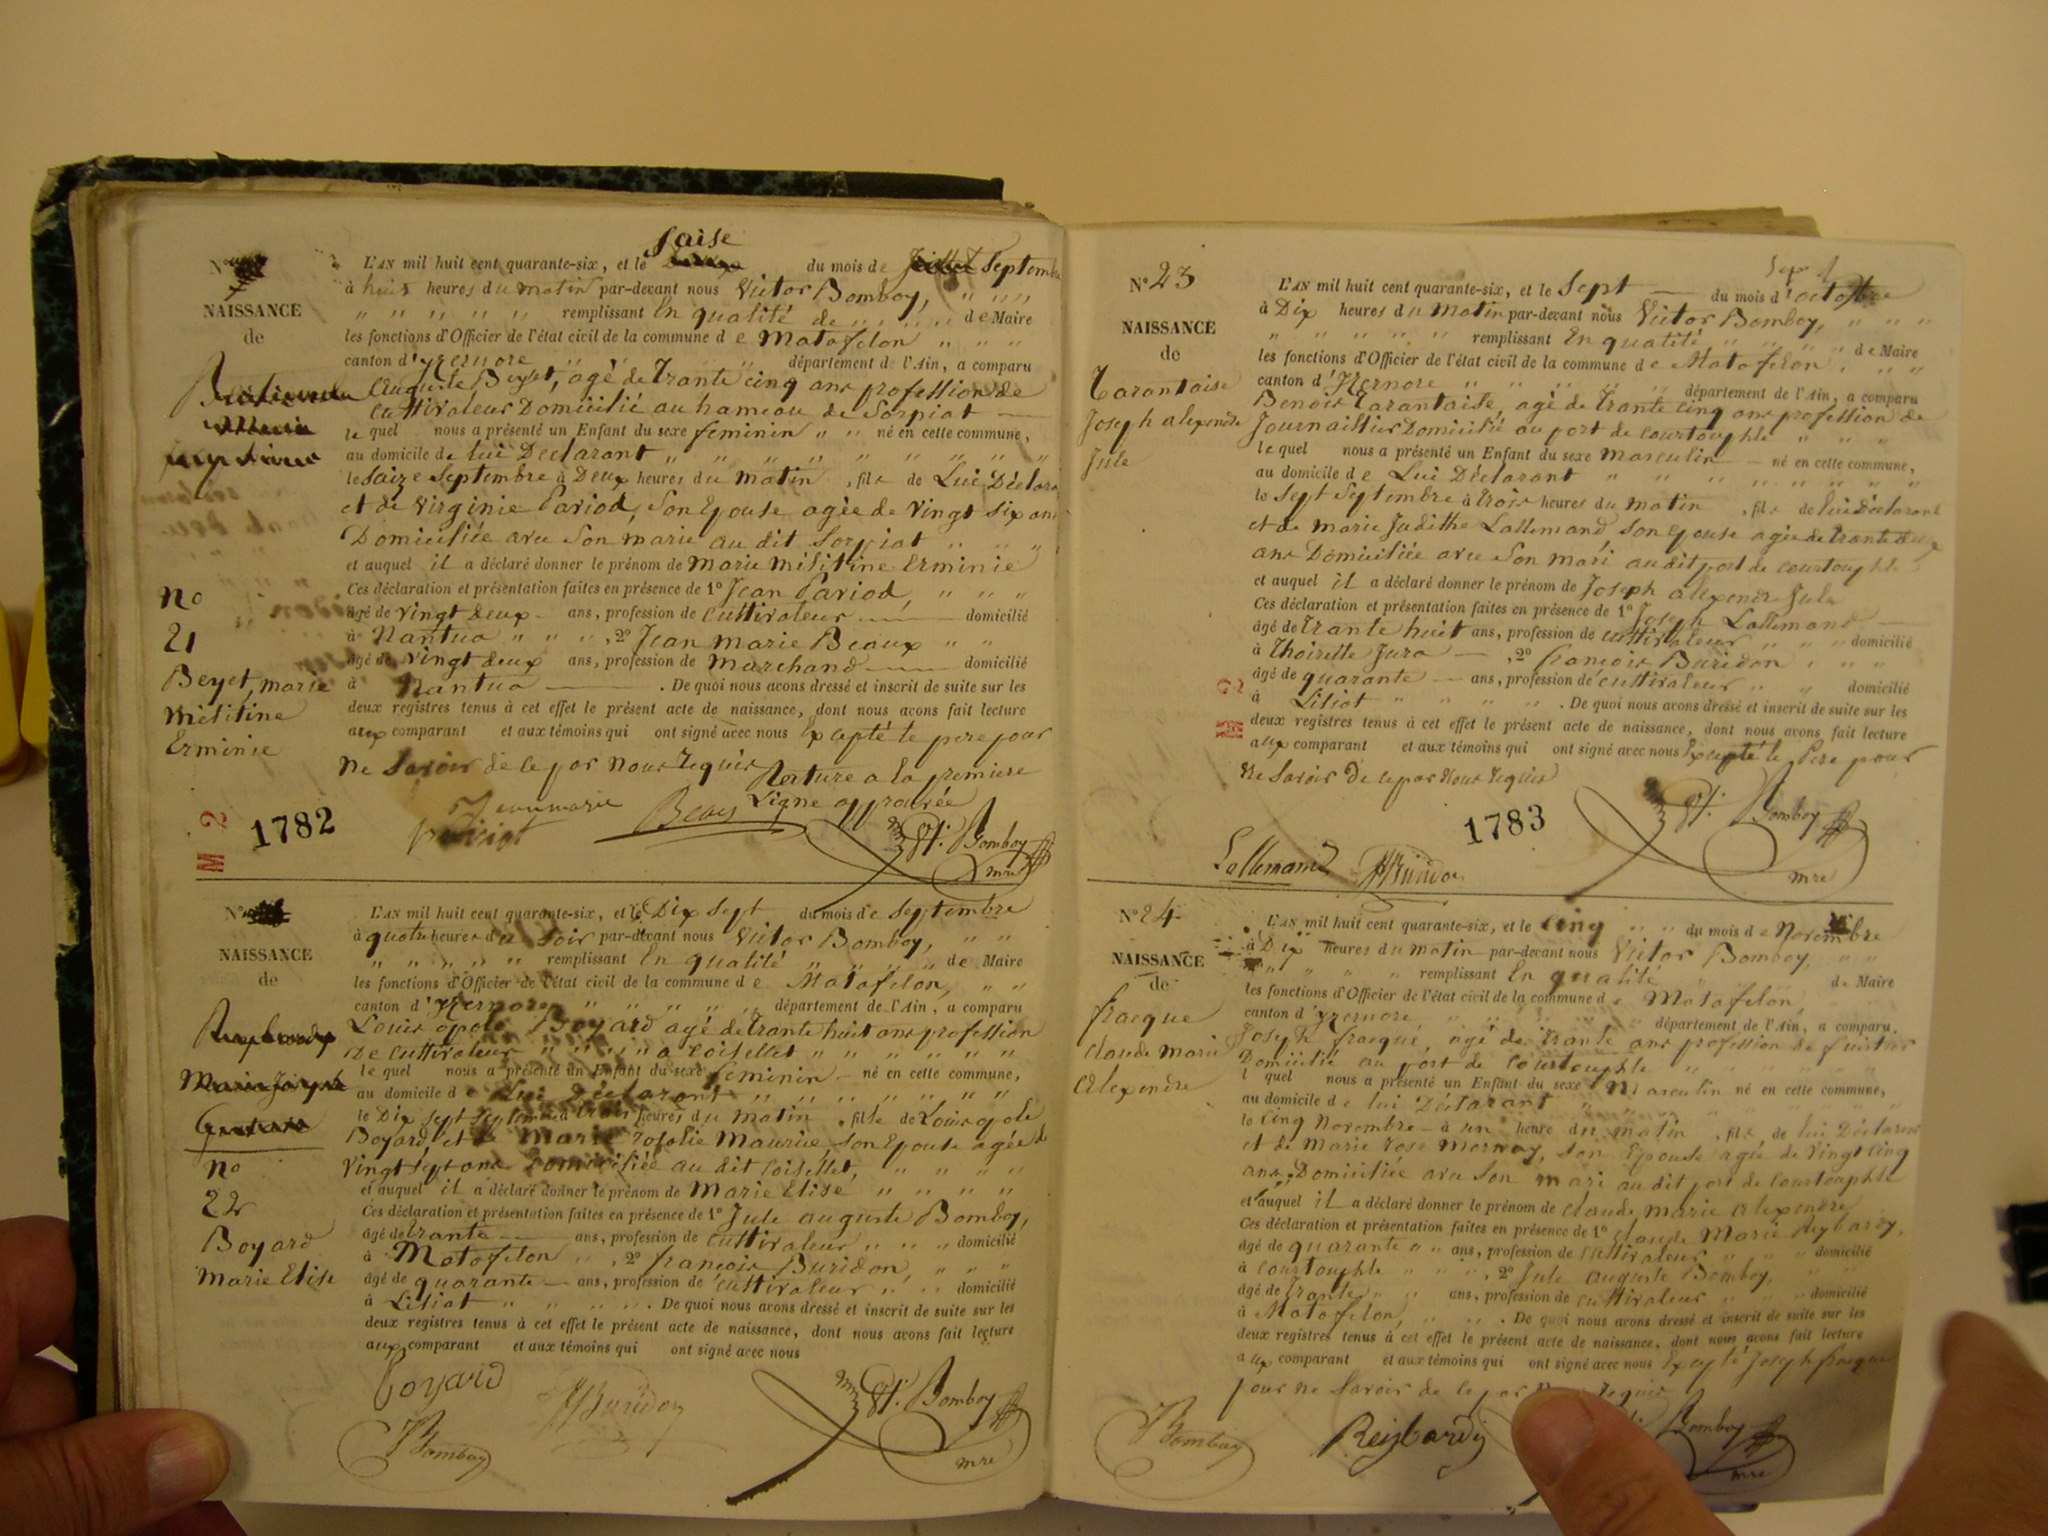 saise
N°
L'AN mil huit cent quarante-six, et le du mois de septembre
à huit heures du matin par-devant nous Victor Bomboy,
remplissant En qualité de de Maire
NAISSANCE
de
les fonctions d'Officier de l'état civil de la commune de Matafelon
canton d'Yzernore département de l'Ain, a comparu
Auguste Beyet, agé de trante cinq ans profession de
cultivateur Domicilié au hameau de Sorpiat
le quel nous a présenté un Enfant du sexe feminin né en cette commune,
au domicile de lui Déclarant
le saize septembre à Deux heures du matin, fils de Lui Déclara
et de Virginie Pariod, son Epouse agée de vingt six ans
Domiciliée avec son marie au dit Sorpiat
et auquel il a déclaré donner le prénom de marie militine Erminie
Ces déclaration et présentation faites en présence de 1° Jean Pariod,
âgé de vingt deux ans, profession de cultivateur domicilié
à Nantua, 2° Jean marie Beaux
âgé de vingt deux ans, profession de marchand domicilié
à Nantua. De quoi nous avons dressé et inscrit de suite sur les
deux registres tenus à cet effet le présent acte de naissance, dont nous avons fait lecture
aux comparant et aux témoins qui ont signé avec nous Excepté le pere pour
ne savoir de ce par nous requis Rature a la premiere
Ligne approuvée
n°
21
Beyet, marie
Militine
Erminie
M 2
1782
Jeanmarie
Beaux
Vr. Bomboy
mre
N°
NAISSANCE
de
L'AN mil huit cent quarante-six, et le Dix sept du mois de septembre
à quatre heures du soir par-devant nous Victor Bomboy,
remplissant En qualité de Maire
les fonctions d'Officier de l'état civil de la commune de Matafelon,
canton d'Yzernore département de l'Ain, a comparu
Louis Boyard agé de trante huit ans profession
De cultivateur a coisellet
le quel nous a présenté un Enfant du sexe feminin né en cette commune,
au domicile de Lui Déclarant
le Dix sept septembre à trois heures du matin, fille de Louis
Boyard et de Marie rosalie Maurice, son Epouse agée de
vingt sept ans Domiciliée au dit coisellet,
et auquel il a déclaré donner le prénom de Marie Elise
Ces déclaration et présentation faites en présence de 1° Jule auguste Bomboy,
âgé de trante ans, profession de cultivateur domicilié
à Matafelon, 2° francois Buridon,
âgé de quarante ans, profession de cultivateur domicilié
à Lisiat. De quoi nous avons dressé et inscrit de suite sur les
deux registres tenus à cet effet le présent acte de naissance, dont nous avons fait lecture
aux comparant et aux témoins qui ont signé avec nous
Marie Joseph
n°
22
Boyard
Marie Elise
Boyard
Buridon
Bomboy
Vr. Bomboy
mre
N° 23
NAISSANCE
de
Tarantaise
Joseph alexendre
Jule
L'AN mil huit cent quarante-six, et le Sept du mois d'octobre
à Dix heures du matin par-devant nous Victor Bomboy,
remplissant En qualité de Maire
les fonctions d'Officier de l'état civil de la commune de Matafelon,
canton d'Yzernore département de l'Ain, a comparu
Benois Tarantaise, agé de trante cinq ans profession de
Journaillier Domicilié au port de courtouphle
le quel nous a présenté un Enfant du sexe masculin né en cette commune,
au domicile de Lui Déclarant
le sept septembre à trois heures du matin, fils de lui déclarant
et de marie Judithe Lallemand son Epouse agée de trante deux
ans Domiciliée avec son mari au dit port de courtouphle
et auquel il a déclaré donner le prénom de Joseph alexendre Jule
Ces déclaration et présentation faites en présence de 1° Joseph Lallemand
âgé de trante huit ans, profession de cultivateur domicilié
à Thoirette Jura, 2° francois Buridon
âgé de quarante ans, profession de cultivateur domicilié
à Lisiat. De quoi nous avons dressé et inscrit de suite sur les
deux registres tenus à cet effet le présent acte de naissance, dont nous avons fait lecture
aux comparant et aux témoins qui ont signé avec nous Excepté le Pere pour
ne savoir de ce par nous requis
1783
Lallemand
Buridon
Vr. Bomboy
mre
N° 24
NAISSANCE
de
fracque
claude marie
alexendre
L'AN mil huit cent quarante-six, et le cinq du mois de Novembre
à Dix heures du matin par-devant nous Victor Bomboy,
remplissant En qualité de Maire
les fonctions d'Officier de l'état civil de la commune de Matafelon,
canton d'Yzernore, département de l'Ain, a comparu.
Joseph fracque, agé de trante ans profession de
Domicilié au port de courtouphle
l quel nous a présenté un Enfant du sexe Masculin né en cette commune,
au domicile de lui Déclarant
le cinq Novembre à un heure du matin, fils de lui Déclarant
et de Marie rose Mornay, son Epouse agée de vingt cinq
ans Domiciliée avec son mari au dit port de courtouphle
et auquel il a déclaré donner le prénom de claude marie alexendre
Ces déclaration et présentation faites en présence de 1° claude Marie Reybardy,
âgé de quarante ans, profession de cultivateur domicilié
à courtouphle, 2° Jule auguste Bomboy,
âgé de trante ans, profession de cultivateur domicilié
à Matafelon, De quoi nous avons dressé et inscrit de suite sur les
deux registres tenus à cet effet le présent acte de naissance, dont nous avons fait lecture
aux comparant et aux témoins qui ont signé avec nous Excepté Joseph fracque
pour ne savoir de ce par nous requis
Bomboy
Reybardy
Bomboy
mre